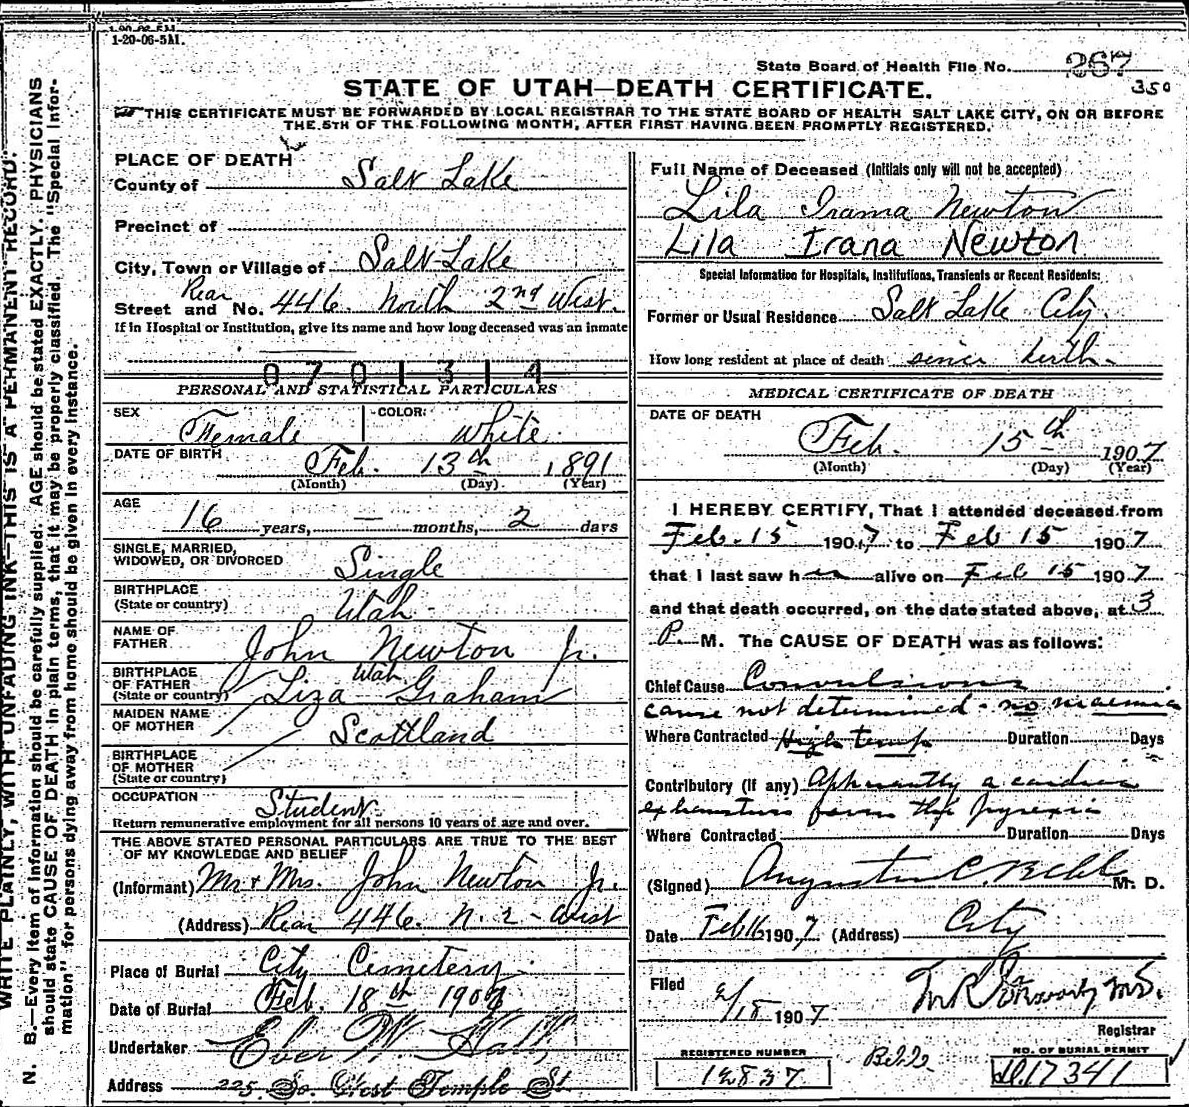 1-20-06-5M.
State Board of Health File No. 267
350
STATE OF UTAH—DEATH CERTIFICATE.
THIS CERTIFICATE MUST BE FORWARDED BY LOCAL REGISTRAR TO THE STATE BOARD OF HEALTH SALT LAKE CITY, ON OR BEFORE
THE 5TH OF THE FOLLOWING MONTH, AFTER FIRST HAVING BEEN PROMPTLY REGISTERED.
WRITE PLAINLY, WITH UNFADING INK—THIS IS A PERMANENT RECORD.
N. B.—Every item of information should be carefully supplied. AGE should be stated EXACTLY. PHYSICIANS
should state CAUSE OF DEATH in plain terms, that it may be properly classified. The "Special Infor-
mation" for persons dying away from home should be given in every instance.
PLACE OF DEATH
County of Salt Lake
Precinct of
City, Town or Village of Salt Lake
Street and No. Rear 446 North 2nd West.
If in Hospital or Institution, give its name and how long deceased was an inmate
0701314
PERSONAL AND STATISTICAL PARTICULARS
SEX Female COLOR: White
DATE OF BIRTH Feb. 13th 1891
(Month) (Day) (Year)
AGE 16 years, — months, 2 days
SINGLE, MARRIED,
WIDOWED, OR DIVORCED Single
BIRTHPLACE
(State or country) Utah
NAME OF
FATHER John Newton Jr.
BIRTHPLACE
OF FATHER
(State or country) Utah
Liza Graham
MAIDEN NAME
OF MOTHER
Scottland
BIRTHPLACE
OF MOTHER
(State or country)
OCCUPATION Student
Return remunerative employment for all persons 10 years of age and over.
THE ABOVE STATED PERSONAL PARTICULARS ARE TRUE TO THE BEST
OF MY KNOWLEDGE AND BELIEF
(Informant) Mr & Mrs. John Newton Jr.
(Address) Rear 446 N. 2 - West
Place of Burial City Cemetery
Date of Burial Feb. 18th 1907
Undertaker Eber W. Hall
Address 225 So. West Temple St
Full Name of Deceased (Initials only will not be accepted)
Lila Irama Newton
Lila Irana Newton
Special Information for Hospitals, Institutions, Transients or Recent Residents:
Former or Usual Residence Salt Lake City.
How long resident at place of death since birth.
MEDICAL CERTIFICATE OF DEATH
DATE OF DEATH
Feb. 15th 1907
(Month) (Day) (Year)
I HEREBY CERTIFY, That I attended deceased from
Feb. 15 1907 to Feb 15 1907
that I last saw her alive on Feb 15 1907
and that death occurred, on the date stated above, at 3
P. M. The CAUSE OF DEATH was as follows:
Chief Cause Convulsions
cause not determined - no uraemia
Where Contracted High temp Duration Days
Contributory (if any) Apparently a cardiac
exhaustion from the pyrexia
Where Contracted Duration Days
(Signed) Augustus C. Behle M. D.
Date Feb 16 1907 (Address) City
Filed 2/18 1907
Registrar
REGISTERED NUMBER
12837
Behle
NO. OF BURIAL PERMIT
17341